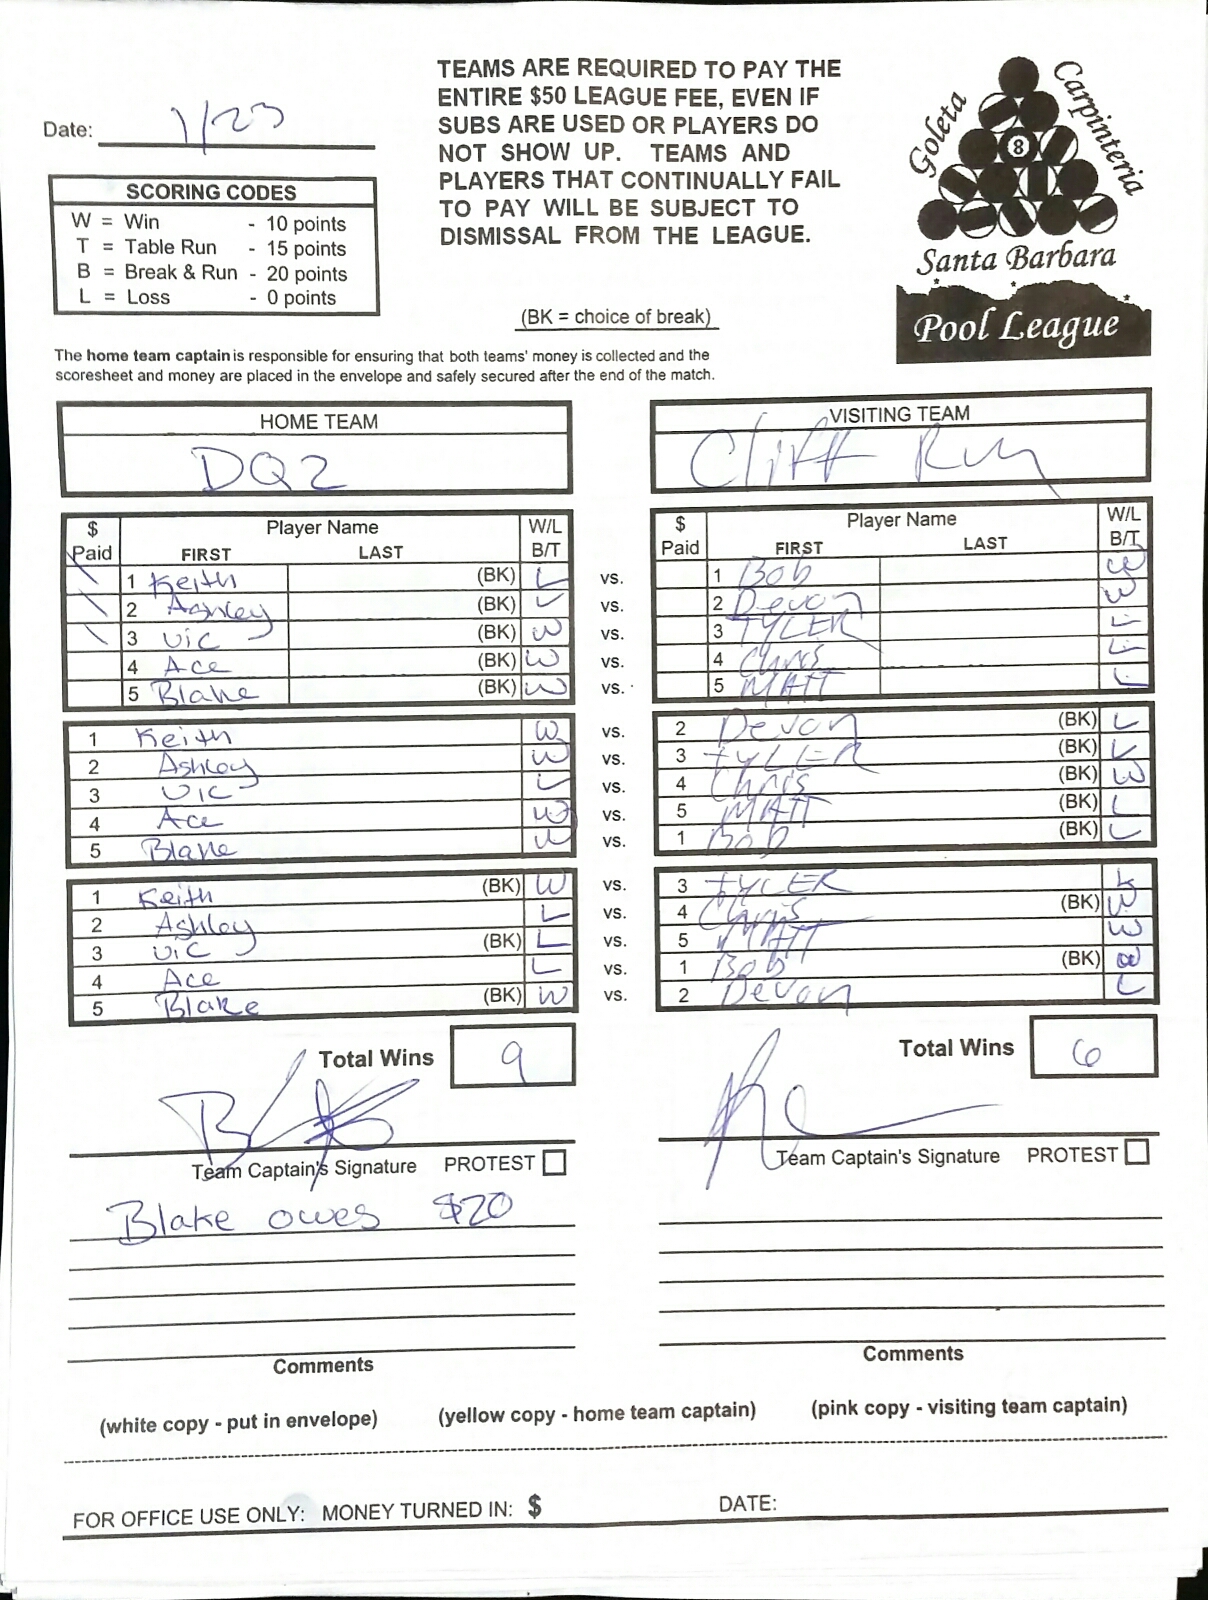 Date: 1/23
TEAMS ARE REQUIRED TO PAY THE
ENTIRE $50 LEAGUE FEE, EVEN IF
SUBS ARE USED OR PLAYERS DO
NOT SHOW UP. TEAMS AND
PLAYERS THAT CONTINUALLY FAIL
TO PAY WILL BE SUBJECT TO
DISMISSAL FROM THE LEAGUE.
Goleta
Carpinteria
8
Santa Barbara
Pool League
SCORING CODES
W = Win - 10 points
T = Table Run - 15 points
B = Break & Run - 20 points
L = Loss - 0 points
(BK = choice of break)
The home team captain is responsible for ensuring that both teams' money is collected and the
scoresheet and money are placed in the envelope and safely secured after the end of the match.
HOME TEAM VISITING TEAM
DQ2 Cliff
$ Paid Player Name FIRST LAST W/L B/T $ Paid Player Name FIRST LAST W/L B/T
1 Keith (BK) L vs. 1 Bob W
2 Ashley (BK) L vs. 2 Devon W
3 Vic (BK) W vs. 3 TYLER L
4 Ace (BK) W vs. 4 Chris L
5 Blake (BK) W vs. 5 MATT L
1 Keith W vs. 2 Devon (BK) L
2 Ashley W vs. 3 TYLER (BK) L
3 Vic L vs. 4 Chris (BK) W
4 Ace W vs. 5 MATT (BK) L
5 Blake W vs. 1 Bob (BK) L
1 Keith (BK) W vs. 3 TYLER L
2 Ashley L vs. 4 Chris (BK) W
3 Vic (BK) L vs. 5 MATT W
4 Ace L vs. 1 Bob (BK) W
5 Blake (BK) W vs. 2 Devon L
Total Wins 9 Total Wins 6
Team Captain's Signature PROTEST Team Captain's Signature PROTEST
Blake owes $20
Comments Comments
(white copy - put in envelope) (yellow copy - home team captain) (pink copy - visiting team captain)
FOR OFFICE USE ONLY: MONEY TURNED IN: $ DATE: